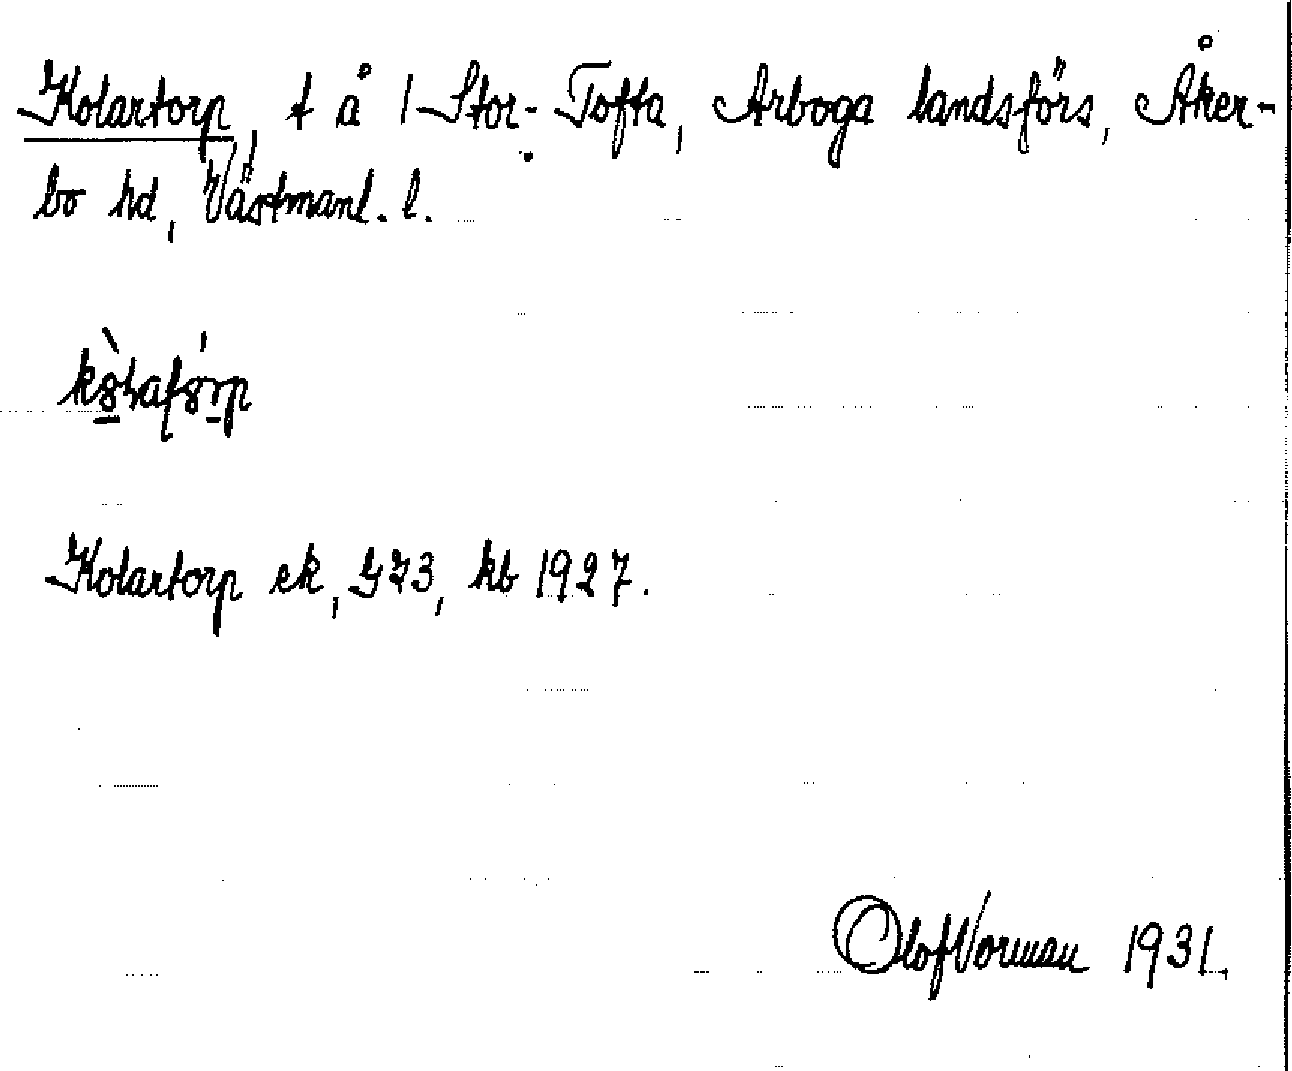 Kolartorp, t å 1 Stor-Tofta, Arboga landsförs, Åker-
bo hd, Västmanl. l.
Kolartorp ek, G73, kb 1927.
Olof Vorman 1931.